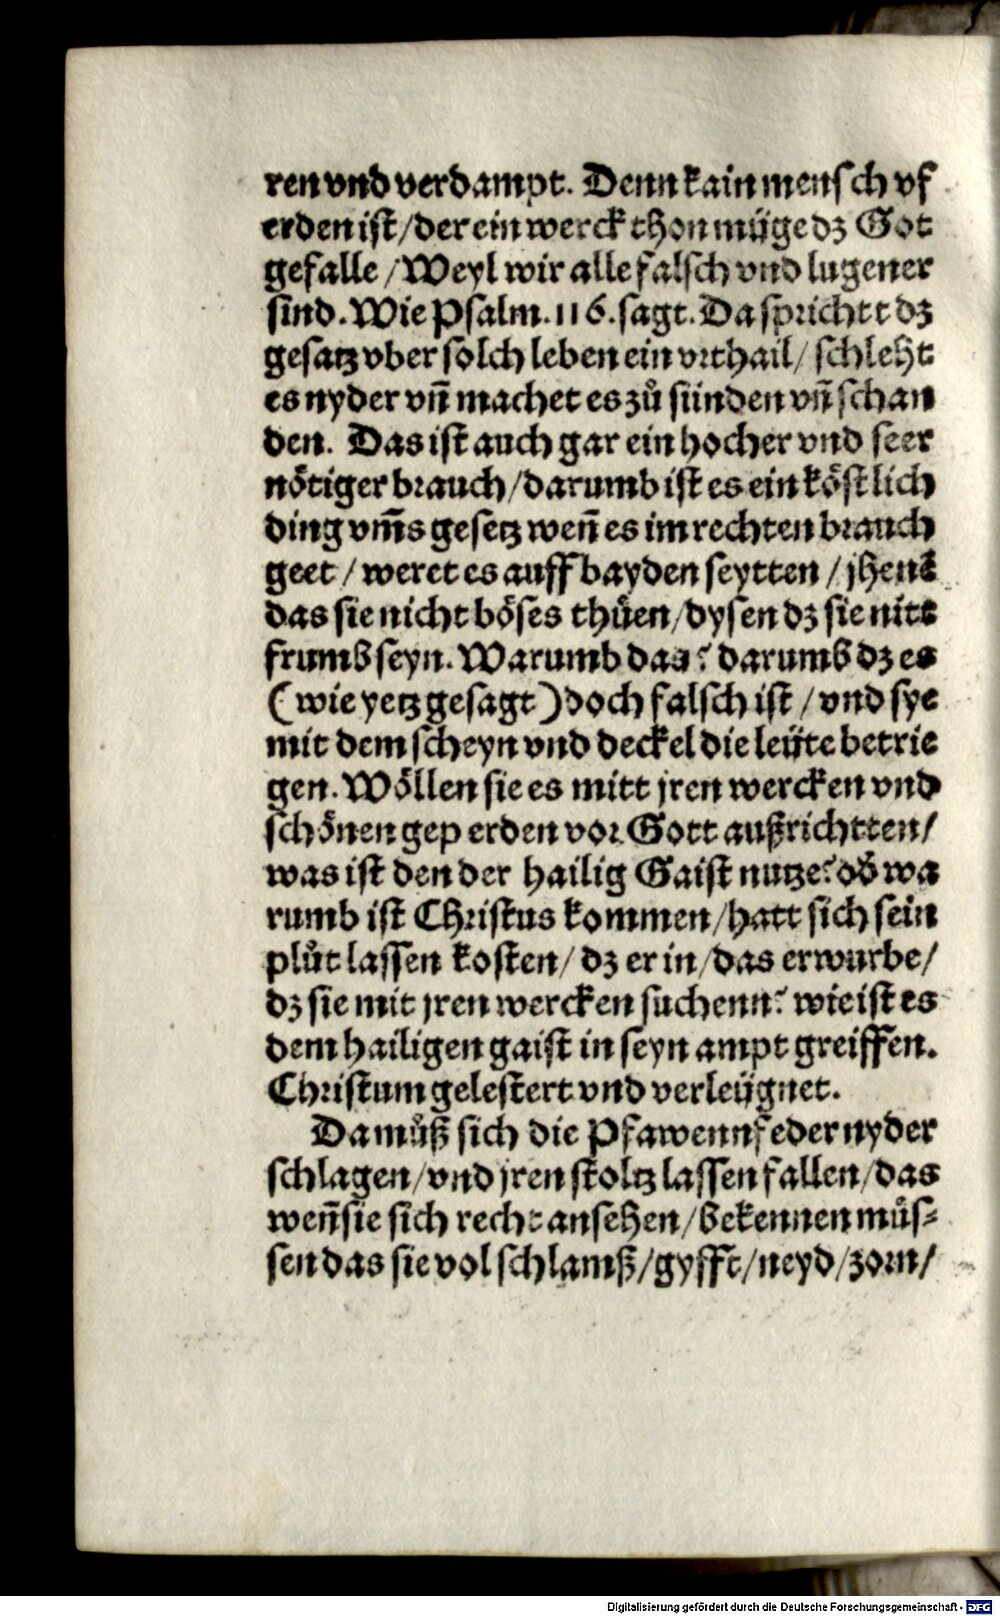 ren vnd verdampt. Denn kain mensch vf
erden ist / der ein werck thon müge dz Got
gefalle / Weyl wir alle falsch vnd lugener
sind. Wie Psalm. 116. sagt. Da sprichtt dz
gesatz vber solch leben ein vrthail / schleht
es nyder vñ machet es zů sünden vñ schan
den. Das ist auch gar ein hocher vnd seer
nötiger brauch / darumb ist es ein köstlich
ding vm̃s gesetz weñ es im rechten brauch
geet / weret es auff bayden seytten / jhenē
das sie nicht böses thüen / dysen dz sie nitt
frumb seyn. Warumb das? darumb dz es
(wie yetz gesagt) doch falsch ist / vnd sye
mit dem scheyn vnd deckel die leüte betrie
gen. Wöllen sie es mitt jren wercken vnd
schönen geperden vor Gott außrichtten /
was ist den der hailig Gaist nutze? ob wa
rumb ist Christus kommen / hatt sich sein
plůt lassen kosten / dz er in / das erwurbe /
dz sie mit jren wercken suchenn? wie ist es
dem hailigen gaist in seyn ampt greiffen.
Christum gelestert vnd verleügnet.
Da můß sich die Pfawennfeder nyder
schlagen / vnd jren stoltz lassen fallen / das
weñ sie sich recht ansehen / bekennen müs-
sen das sie vol schlamß / gyfft / neyd / zorn /
Digitalisierung gefördert durch die Deutsche Forschungsgemeinschaft - DFG